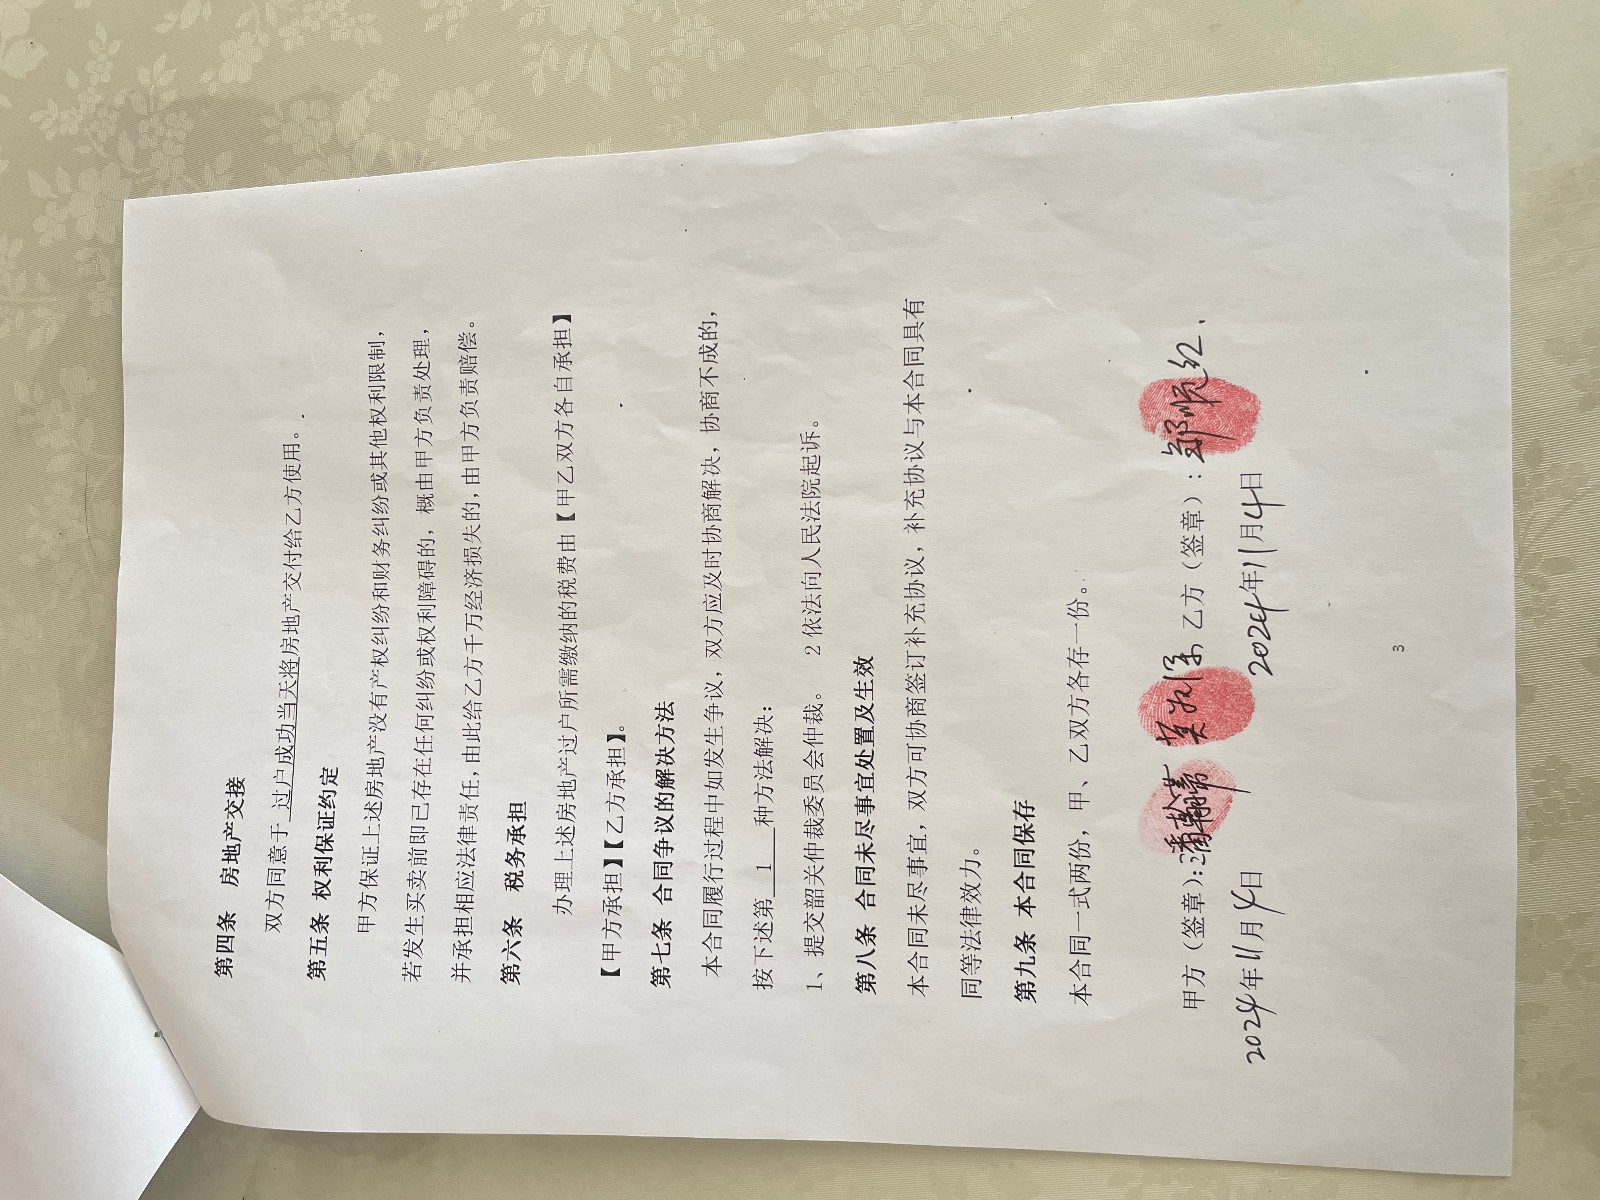 第四条　房地产交接
双方同意于 过户成功当天将房地产交付给乙方使用。
第五条 权利保证约定
甲方保证上述房地产没有产权纠纷和财务纠纷或其他权利限制，
若发生买卖前即已存在任何纠纷或权利障碍的，概由甲方负责处理，
并承担相应法律责任，由此给乙方千万经济损失的，由甲方负责赔偿。
第六条　税务承担
办理上述房地产过户所需缴纳的税费由【甲乙双方各自承担】
【甲方承担】【乙方承担】。
第七条 合同争议的解决方法
本合同履行过程中如发生争议，双方应及时协商解决，协商不成的，
按下述第 1 种方法解决：
1、提交韶关仲裁委员会仲裁。 2 依法向人民法院起诉。
第八条 合同未尽事宜处置及生效
本合同未尽事宜，双方可协商签订补充协议，补充协议与本合同具有
同等法律效力。
第九条 本合同保存
本合同一式两份，甲、乙双方各存一份。
甲方（签章）： 乙方（签章）：邹顺红
2024年11月4日 2024年11月4日
3